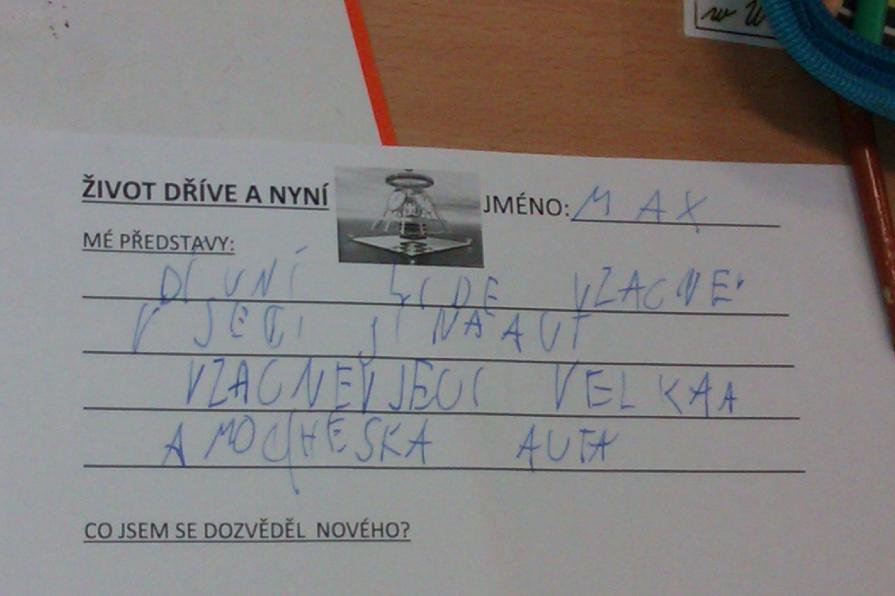 ŽIVOT DŘÍVE A NYNÍ
JMÉNO: MAX
MÉ PŘEDSTAVY:
DÍVNÍ LIDE VZACNE
VJECI JINA AUT
VZACNEVJECI VELKAA
A MOC HESKA AUTA
CO JSEM SE DOZVĚDĚL NOVÉHO?